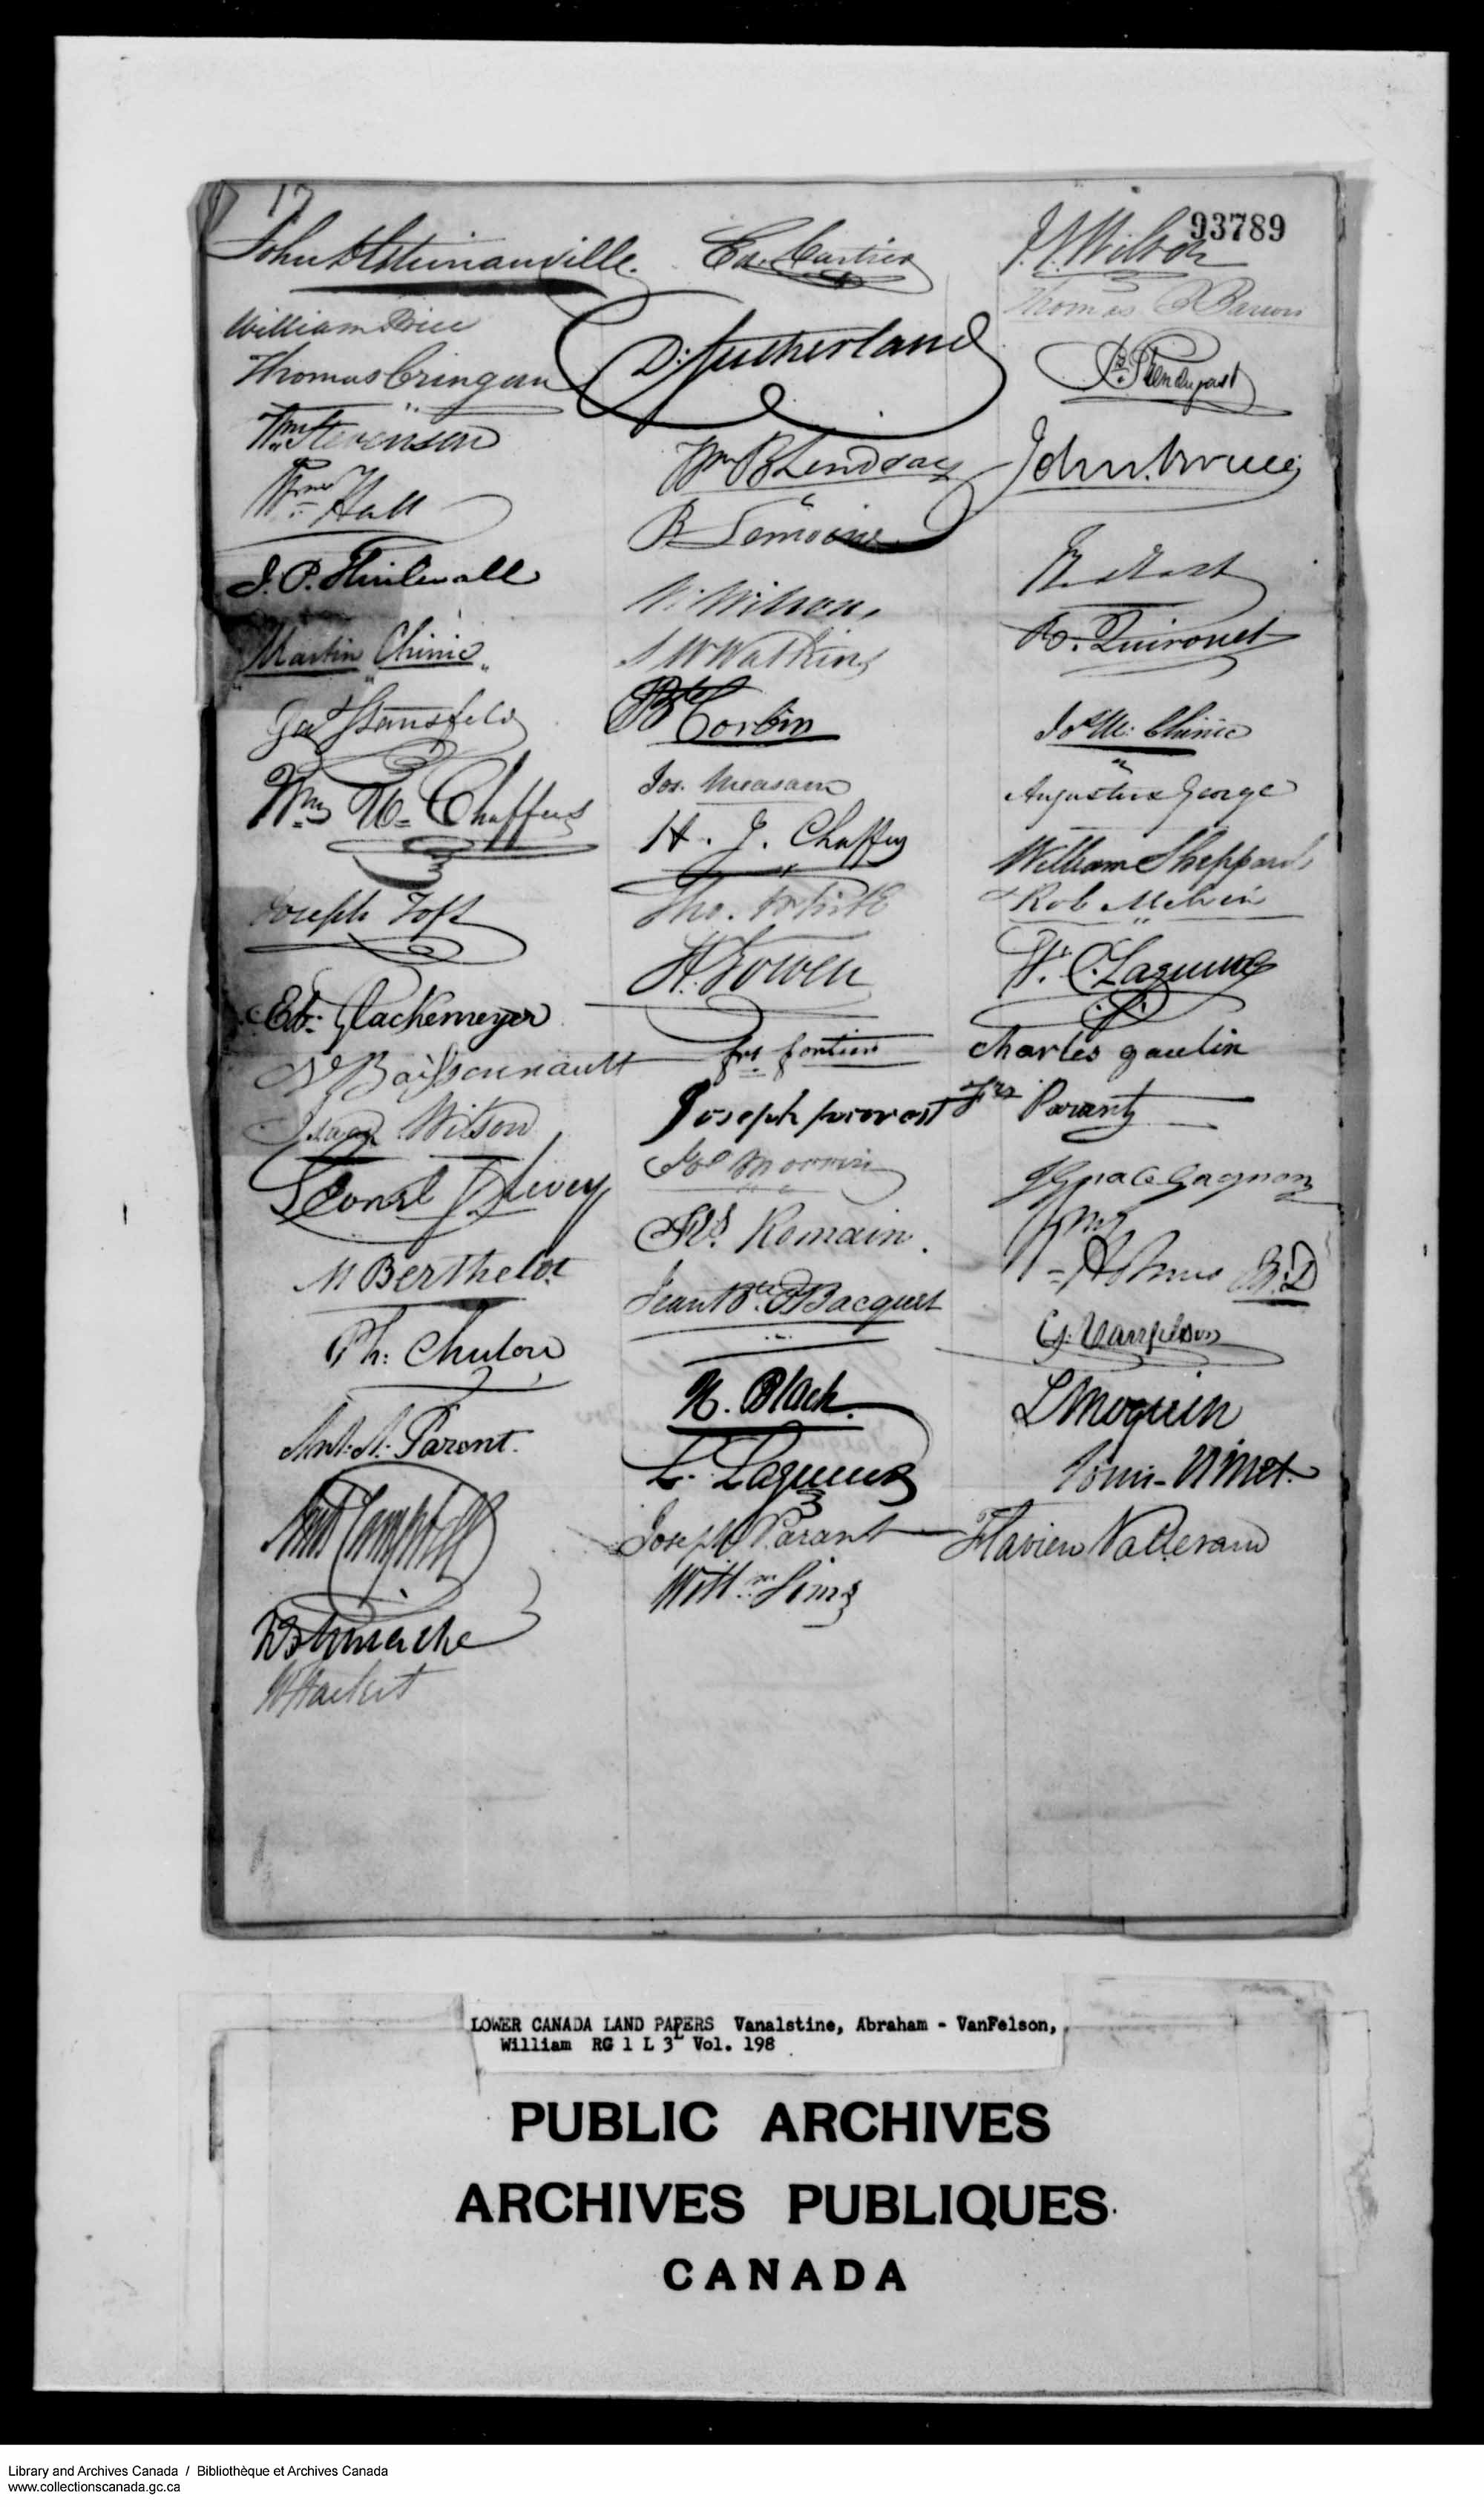 17
93789
William Price
Thomas Cringan
Wm Stevenson
Wm Hall
J. P.
Martin Chinic
Geo Stansfeld
Wm H. Chaffers
Joseph Toft
Ed. Glackemeyer
Boissonnault
Isaac Wilson
M Berthelot
Ph: Chulou
Ant. A. Parent.
Archd Campbell
W Hacket
Ed. Cartier
D: Sutherland
Wm B Lindsay
B Lemoine
W. Wilson,
S W Watkins
Bte Corbin
Jos. Measam
H. J. Chaffers
Tho. White
H. Gowen
Frs fortier
Joseph provost
Jos Morrin
Frs. Romain.
Jean Bte Bacquet
H. Black.
L. Lagueux
Joseph Parant
Willm Sims
Wilson
Thomas Barron
John Bruce
R. Quirouet
Jos M: Chinic
Augustus George
William Sheppard
Rob Melvin
E. C. Lagueux
Charles gaulin
Frs Parant
Ignace Gagnon
G. Vanfelson
L Moquin
Louis Nimet.
Flavien Vallerand
LOWER CANADA LAND PAPERS Vanalstine, Abraham - VanFelson,
William RG 1 L 3L Vol. 198
PUBLIC ARCHIVES
ARCHIVES PUBLIQUES
CANADA
Library and Archives Canada / Bibliothèque et Archives Canada
www.collectionscanada.gc.ca